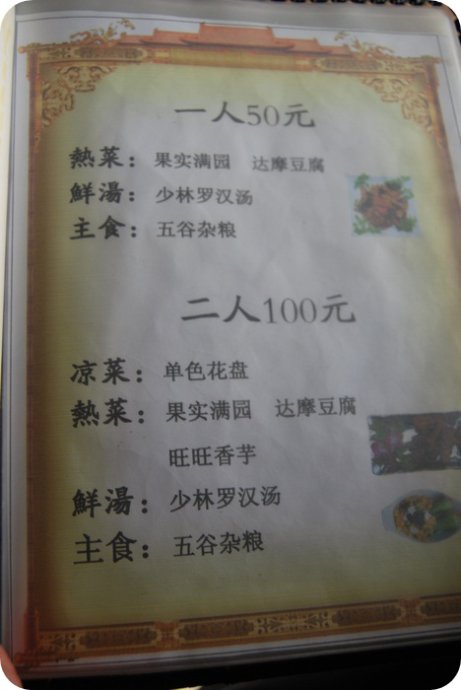 一人50元
熱菜：果实满园 达摩豆腐
鮮湯：少林罗汉汤
主食：五谷杂粮
二人100元
凉菜：单色花盘
熱菜：果实满园 达摩豆腐
旺旺香芋
鮮湯：少林罗汉汤
主食：五谷杂粮